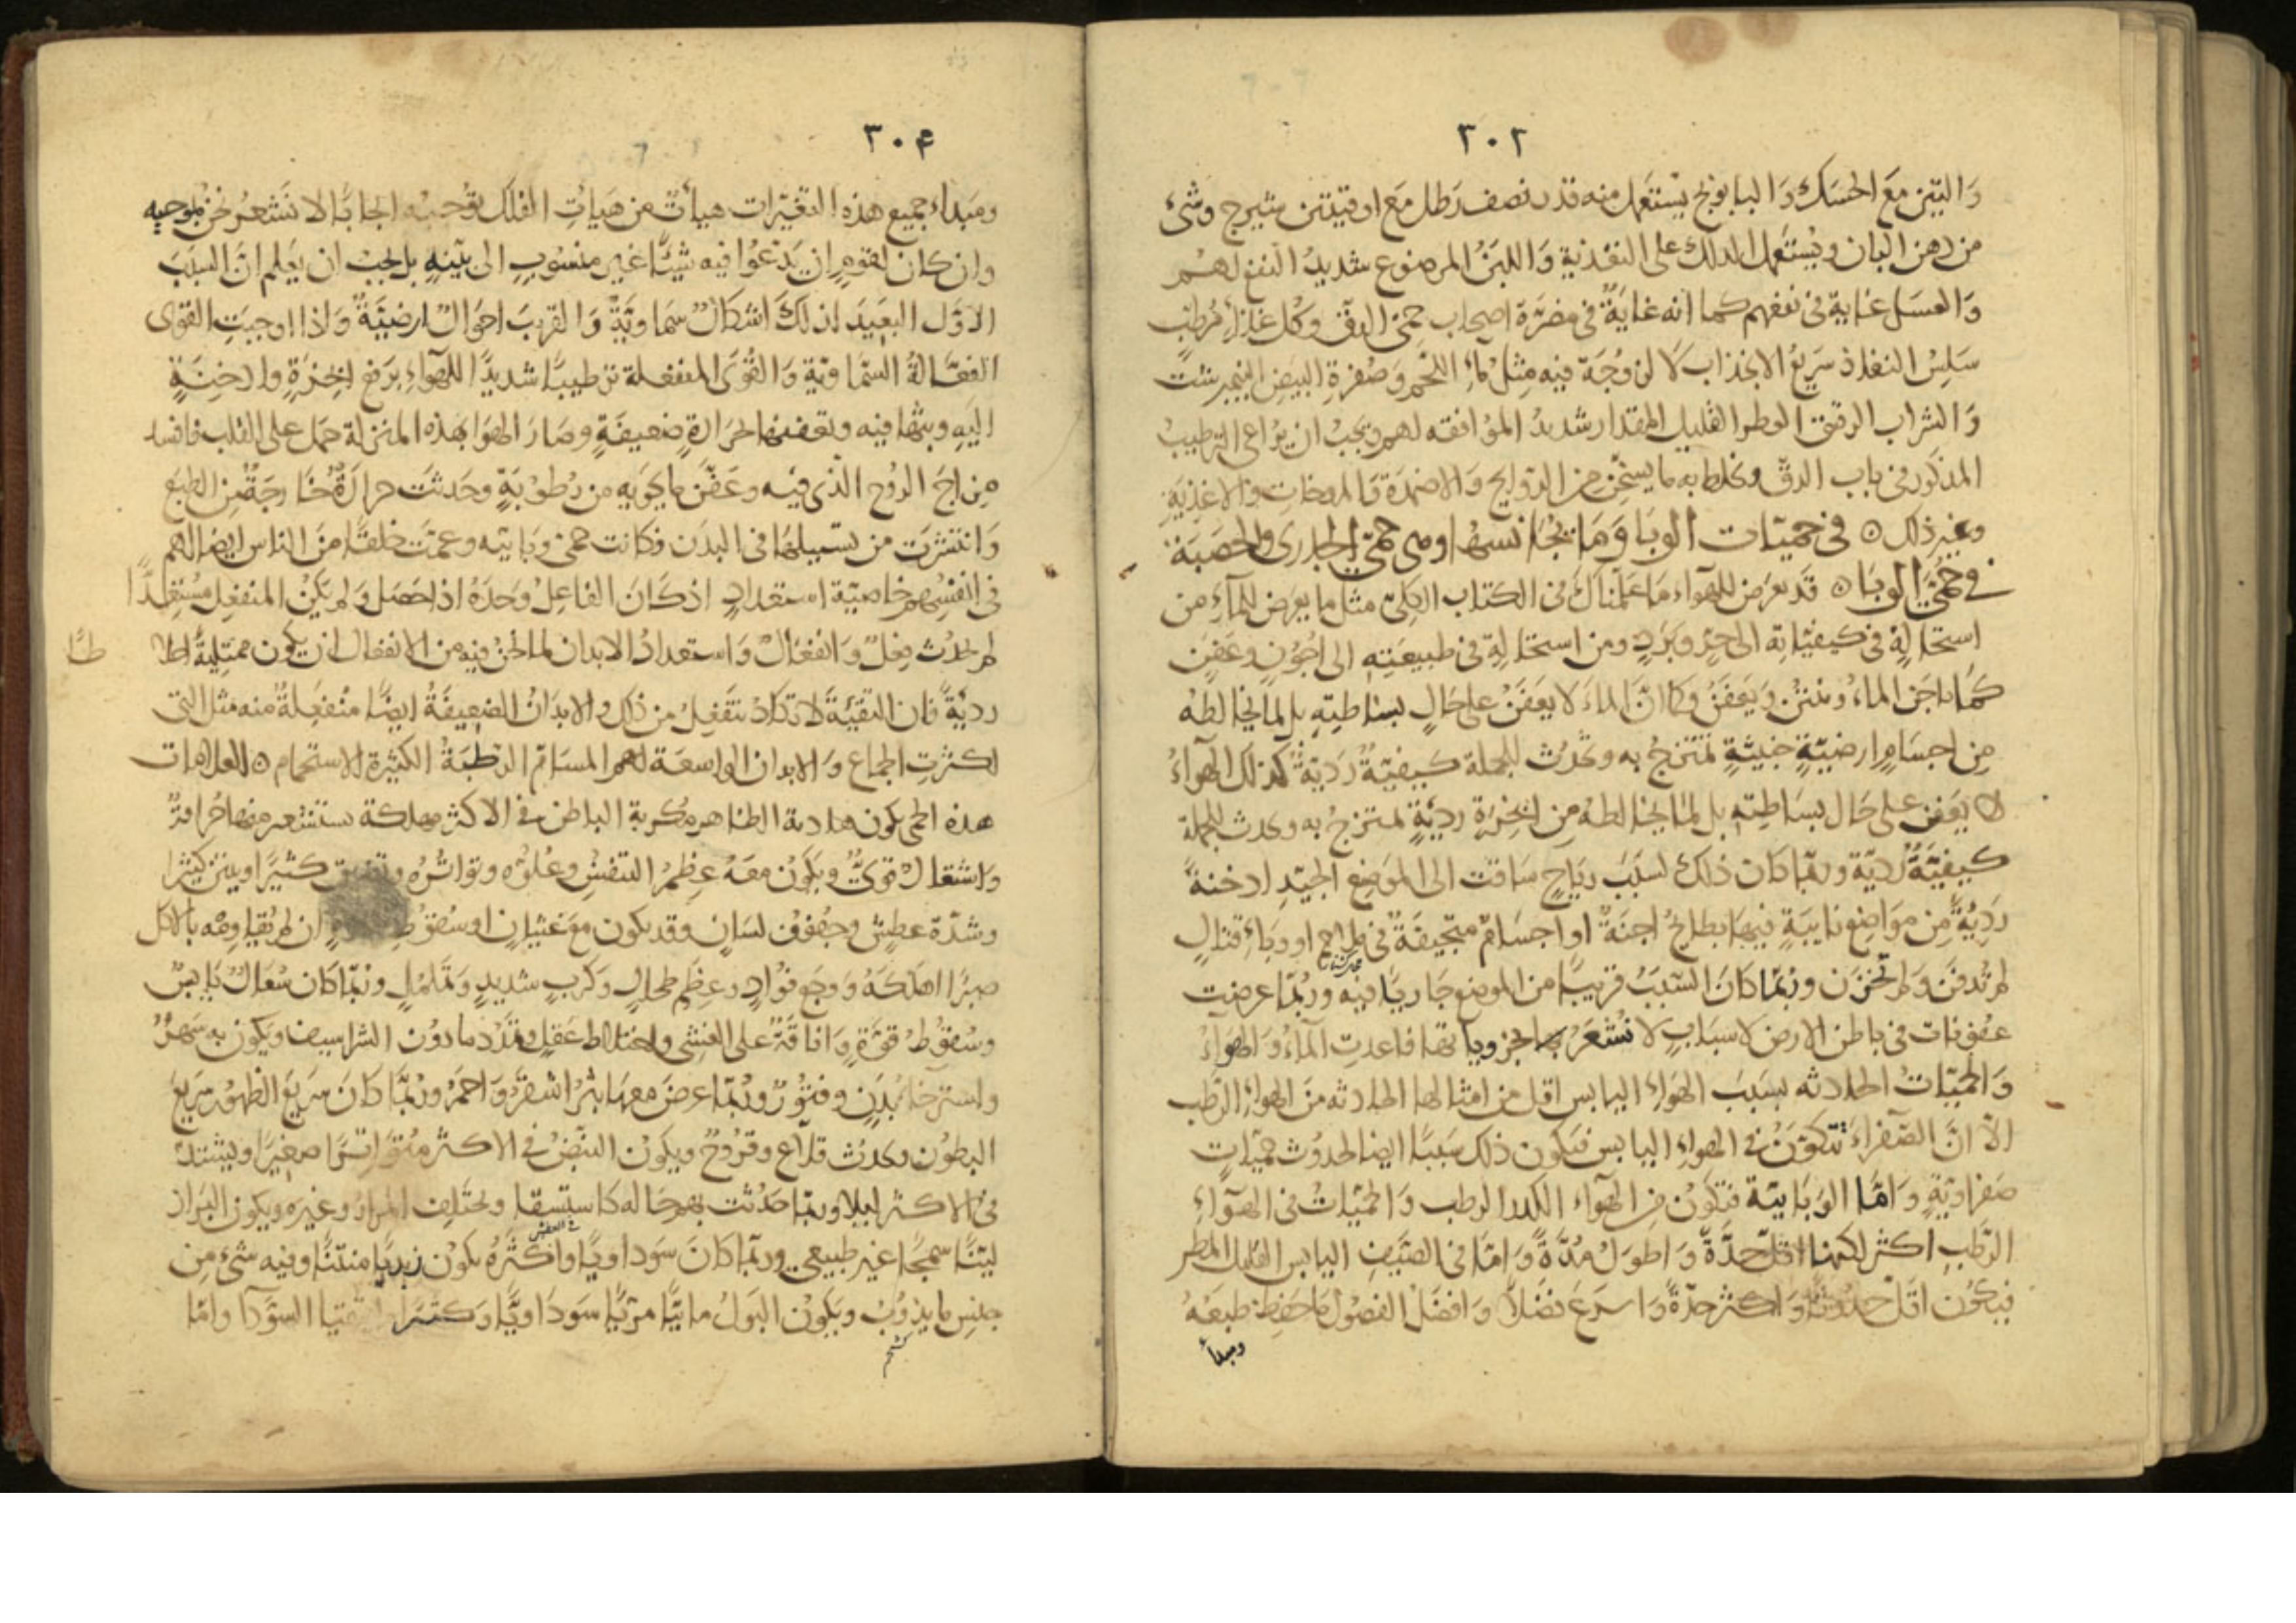 ٣٠٢
وَالتين مَع الحَسَك وَالبابونج يُستعمل منه قدر نصف رَطل مَع اوقيتين شيرج وشئ
من دهن البان ويُستعمل الدلك على التغذية وَاللبَنُ المرضوع شديدُ النفع لهم
وَالعسَل غاية في نفعهم كما انه غايَةٌ في مضرّة اصحاب حمى الدق وكل غذاءٍ مُرطب
سَلِسُ النفاذ سَريعُ الانجذاب لا لزوجَة فيه مثل ماءِ اللحم وصُفرةِ البيض النيمبرشت
وَالشراب الرقيق العطر القليل المقدار شديدُ الموافقه لهم ويجب ان يراعى الترطيبُ
المذكور في باب الدق ويخلط به ما يسخّن من الروايح وَالاضمدة وَالمروخات والاغذية
وغير ذلك ۞ في حميّات الوبا وَمَا يجَانسهَا وهى حمى الجدرى والحصبَة
في حُمّى الوبا ۞ قد يعرض للهواء مَا علمناك في الكتاب الكلى مثل ما يعرض للماءِ من
استحالةٍ في كيفيّاته الى حرٍّ وبَردٍ ومن استحالةٍ في طبيعَتِه الى اجُونٍ وعَفن
كما ياجَن الماء وينتن وَيَعفَنُ وكما انّ الماءَ لا يعفَنُ على حَالِ بسَاطتِهِ بل لما يخالطهُ
مِن اجسَامٍ ارضيّةٍ خبيثةٍ تمتزجُ به وتحدُث للجملة كيفيّةٌ رَديّةٌ كذلك الهواءُ
لا يعَفن على حَال بسَاطِته بل لما يخالطه مِن ابخِرَةٍ رديّةٍ تمتزجُ به وتحدث للجملة
كيفيّةٌ رَديّة وربّما كان ذلك لسبَب ريَاحٍ سَاقت الى الموَضِع الجيّدِ ادخنةً
رَديّةً مِن موَاضِع نايَيةٍ فيها بطايحُ اجنَةٌ او اجسَامٌ متجيفَةٌ في ملاحم او وبَاءِ قتالٍ
لم تُدفَن وَلم تُحرَق وربّما كانَ السّبَبُ قريبًا من الموضع جَاريًا فيه وربّما عرضت
عفونات في باطن الارض لاسبَابٍ لا نُشعَرُ بها بجزويّاتها فاعدتِ المآءُ وَالهوَاءُ
وَالحميّاتُ الحادثه بسبَبِ الهَواءِ اليابس اقل من امثالها الحادثه منَ الهواءِ الرّطب
الاّ انّ الصّفراءَ تتكوّنُ في الهواءِ اليابس فيكون ذلك سَببًا ايضا لحدُوث حميّاتٍ
صَفراويّةٍ وَامّا الوَبَابيّة فتكونُ مِن الهوَاءِ الكدر الرطب وَالحميّاتُ في الهَوآءِ
الرّطبِ اكثر لكنها اقلُّ حِدّةً وَاطوَلُ مُدّةً وَامّا في الصّيفِ اليابس القليل المطر
فيكوُن اقلَّ حدُوثًا وَاكثر حِدّةً وَاسرَعَ فصْلاً وَافضَلُ الفصُول مَا حَفِظ طبعَهُ
ومبدأ
٣٠٤
ومَبداء جميع هذه التغيّرات هيأتٌ من هَياتِ الفلَك توُجبُه ايجابًا لا نَشعُر نحن بموجبِه
وان كان لقومٍ ان يَدّعُوا فيه شيئًا غيرَ منسُوبٍ الى بيّنهٍ بل يجبُ ان يعَلم انّ السبَبَ
الاوّل البعَيد لذلكَ اشكالٌ سَماويّةٌ وَالقريبَ احوَالٌ ارضيّةٌ وَاذا اوجبَتِ القوى
الفعّالةُ السّماويّة وَالقُوَى المنفعلة ترطيبًا شديدًا للهوَاءِ برَفع ابخرَةٍ وادخنَةٍ
اليَهِ وبثّها فيه وتعفينها بحرَارةٍ ضعيفةٍ وصَارَ الهوَا بهذه المنزلة حمَل على القلب فافسد
مِزاجَ الروُح الّذي فيه وعَفّنَ ما يحوَيه من رُطوُبَةٍ وحَدثت حرارةٌ خَارجَةٌ عن الطبَع
وَانتشرَت من سبيلهَا في البدَن فكانت حمى وبَابيّه وعمّت خلقًا منَ الناس ايضا لهم
في انفسُهم خاصيّة استعدادٍ اذ كَانَ الفاعِلُ وَحدَهُ اذا حَصَل وَلم يكُن المنفعِل مُستعِدًّا
لم يحدُث فعِلٌ وَانفعَالٌ وَاستعدادُ الابدان لما نحن فيه من الانفعَال ان يكَون ممتليةً اخلا
طًا
رديّةً فان النقيّةَ لا تكادُ تنفَعِلُ من ذلك والابدَانُ الضعيفَةُ ايضًا منُفعِلةٌ منه مثل التى
اكثرتِ الجماع وَالابدان الواسعَة لهم المسَامّ الرّطبَةُ الكثيرة الاستحمام ۞ العلامات
هذه الحمى يكون هادية الظاهر مُكربة الباطن في الاكثر مهلكة يستشعر منها حَرافةٌ
وَاشتعالٌ قوىٌّ ويكَونُ معَهُ عِظمُ التنفسُ وعُلوُّه وتواتُرُه كثيرًا وينتن كثيرا
وشدّة عطِش وجُفوُفُ لسَانٍ وقد يكون معَ غثيانٍ اوسُقوُط ان لم يقاومه بالاكل
صبرًا اهلكَهُ وَوجَع فوُادٍ وعِظمِ طحالٍ وَكربٍ شديدٍ وَتململٍ وربّما كان سُعَالٌ يَابسٌ
وسُقوُطُ قوّةٍ وَافاقَةٌ على الغشى واختلاط عقلٍ وتمَدّد مادوُن الشراسيف ويكون به سَهرٌ
واسترخاءُ بدَنٍ وفتوُرٌ وربّما عرضَ معهَا بثرٌ اشقرُ وَاحمرُ وربّما كانَ سَريعَ الظهوُر سَريعَ
البطوُن وتحدُث قلاَعٌ وقرُوحٌ ويكونُ النبضُ في الاكثر متوَاترًا صغيرًا ويشتدّ
في الاكثر ليلا وربّما حَدثت بهم حَاله كاستسقا ويختلفِ المرارُ وغيره ويكون البرَاز
ليّنًا سمجًا غير طبيعي وربّما كانَ سَوداويًا واكثرُهُ يكونُ زبديًا منتنًا وفيه شئ مِن
جنسِ مايذوُبُ ويكونُ البَولُ مائيًا مرّيًّا سَودَاويًّا وَكثيرًا السّودَآ وامّا